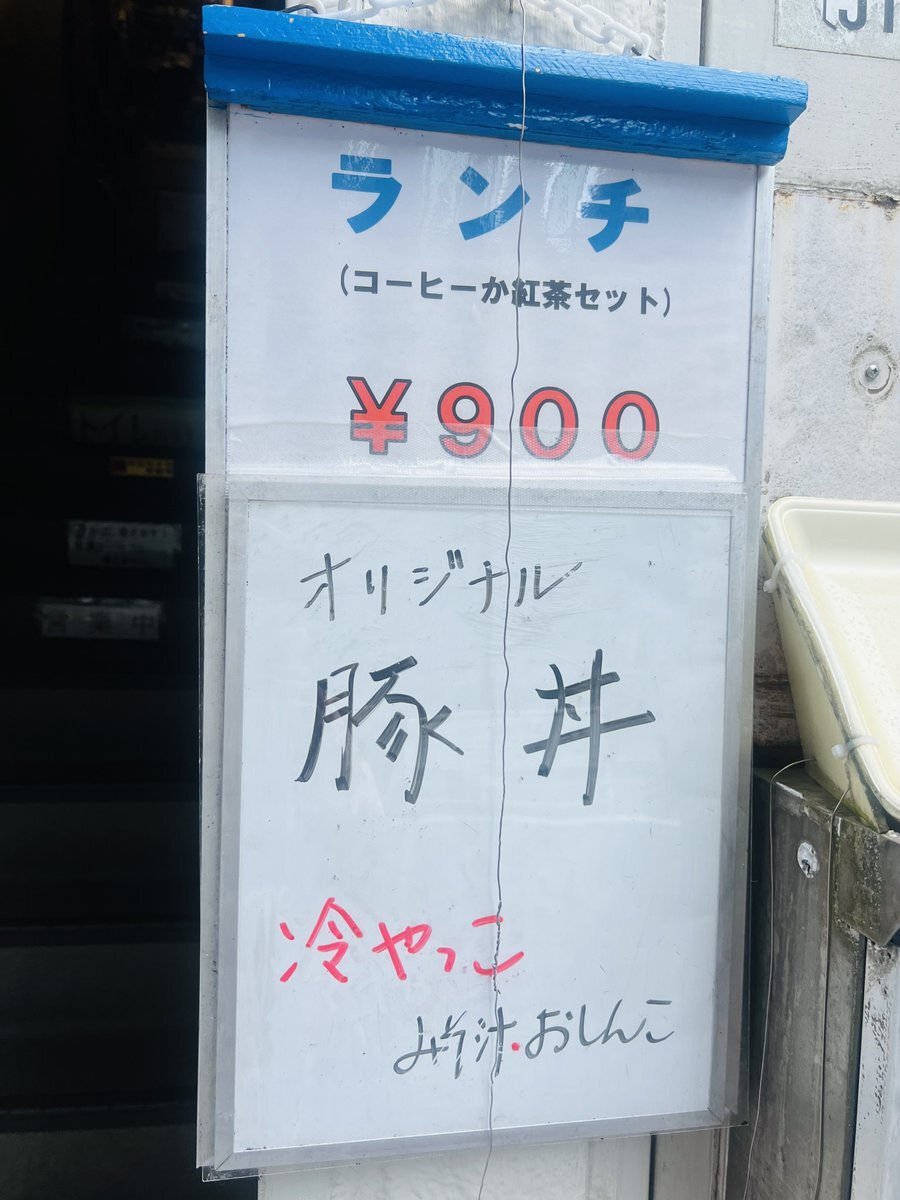 ランチ
（コーヒーか紅茶セット）
￥900
オリジナル
豚丼
冷やっこ
みそ汁・おしんこ
トイレ
営業中